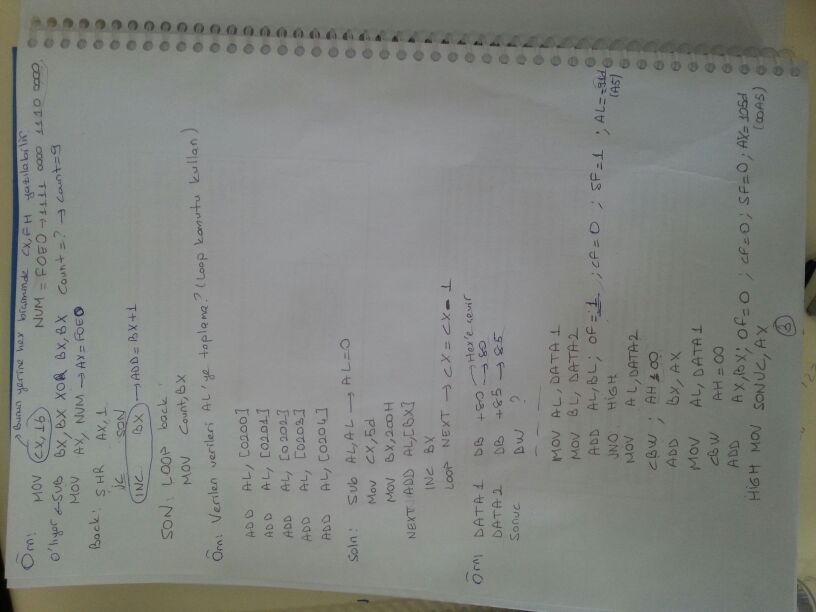 Bunun yerine hex biçiminde CX,FH yazılabilir
Örn: MOV CX,16 NUM = F0E0 → 1111 0000 1110 0000
0'lıyor ← SUB BX,BX XOR BX,BX Count = ? → Count=9
MOV AX, NUM → AX=F0E0
Back: SHR AX,1
JC SON
INC BX → ADD = BX+1
SON: LOOP back
MOV Count,BX
Örn: Verilen verileri AL'ye toplama? (Loop komutu kullan)
ADD AL, [0200]
ADD AL, [0201]
ADD AL, [0202]
ADD AL, [0203]
ADD AL, [0204]
Soln: SUB AL,AL → AL=0
MOV CX,5d
MOV BX,200H
NEXT: ADD AL,[BX]
INC BX
LOOP NEXT → CX = CX - 1
Örn: DATA1 DB +80 → 80 Hex'e çevir
DATA2 DB +85 → 85
Sonuc DW ?
MOV AL, DATA1
MOV BL, DATA2
ADD AL,BL ; OF=1 ; CF=0 ; SF=1 ; AL=-91d
(A5)
JNO HIGH
MOV AL, DATA2
CBW ; AH=00
ADD BX, AX
MOV AL, DATA1
CBW AH=00
ADD AX,BX ; OF=0 ; CF=0 ; SF=0 ; AX=165d
(00A5)
HIGH MOV SONUC, AX
3